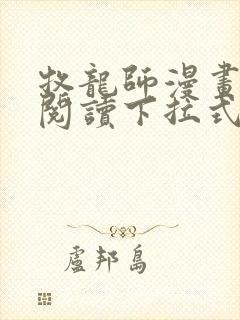 牧龍師漫畫
閱讀下拉式
盧邦島